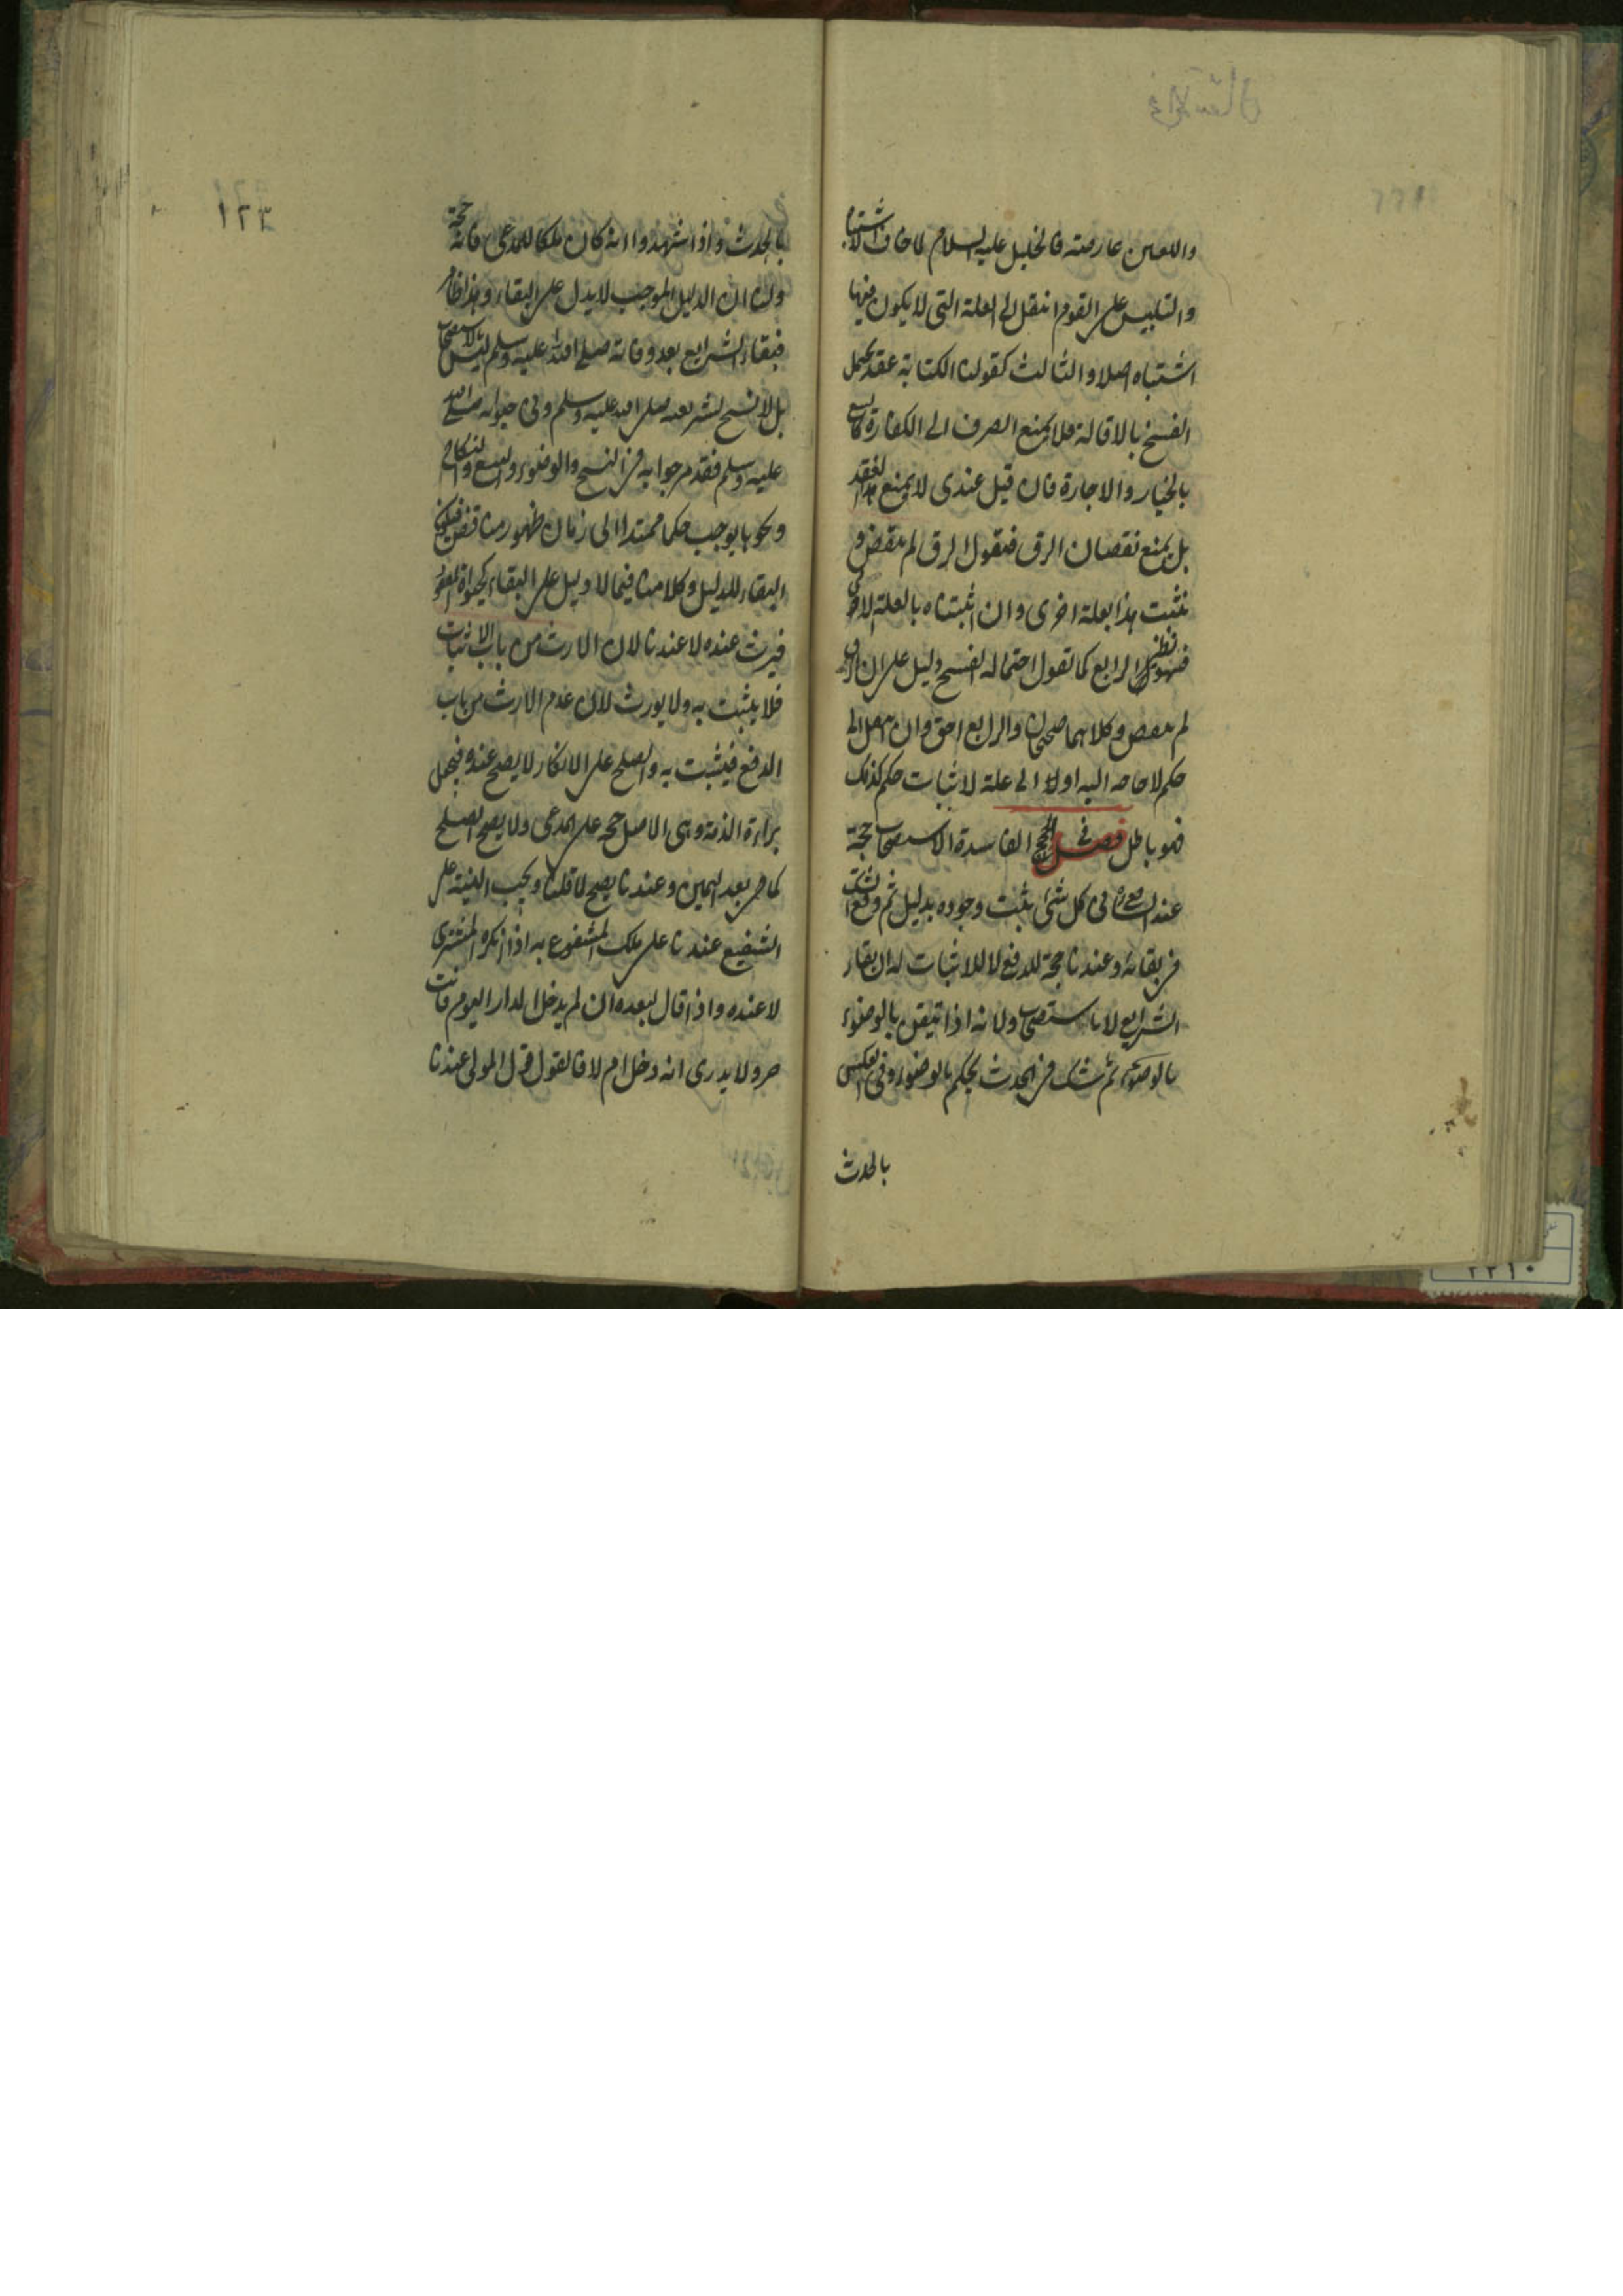 واللعين عارضه فالخليل عليه السلام لما خاف الاشتباه
والتلبيس على القوم انتقل الى العلة التى لا يكون فيها
اشتباه اصلا والثالث كقولنا الكتابة عقد يحتمل
الفسخ بالاقالة فلا يمنع الصرف الى الكفارة كالبيع
بالخيار والاجارة فان قيل عندى لا يمنع هذا العقد
بل يمنع نقصان الرق فنقول الرق لم ينقص و
نثبت هذا بعلة اخرى وان اثبتناه بالعلة الاولى
فهو نظير الرابع كما نقول احتماله الفسخ دليل على ان الرق
لم ينقص وكلاهما صحيحان والرابع احق وان انتقل الى
حكم لا حاجة اليه اولا الى علة لاثبات حكم كذلك
فهو باطل فصل فى الحجج الفاسدة الاستصحاب حجة
عند الشافعى ره فى كل شئ يثبت وجوده بدليل ثم وقع الشك
فى بقائه وعندنا حجة للدفع لا للاثبات له ان بقاء
الشرايع لا بالاستصحاب ولانه اذا تيقن بالوضوء
بالوضوء ثم شك فى الحدث يحكم بالوضوء وفى العكس
بالحدث
١٢٣
بالحدث واذا شهدوا انه كان ملكا للمدعى فانه حجة
ولنا ان الدليل الموجب لا يدل على البقاء وهذا ظاهر
فبقاء الشرايع بعد وفاته صلى الله عليه وسلم ليس بالاستصحاب
بل لانه لا نسخ لشريعته صلى الله عليه وسلم وفى حيوته صلى الله
عليه وسلم فقد مر جوابه فى النسخ والوضوء والبيع والنكاح
ونحوها يوجب حكما ممتدا الى زمان ظهور مناقض فيكون
البقاء للدليل وكلامنا فيما لا دليل على البقاء كحيوة المفقود
فيرث عنده لا عندنا لان الارث من باب الاثبات
فلا يثبت به ولا يورث لان عدم الارث من باب
الدفع فيثبت به والصلح على الانكار لا يصح عنده فيجعل
براءة الذمة وهى الاصل حجة على المدعى ولا يصح الصلح
كما مر بعد اليمين وعندنا يصح لما قلنا ويجب البينة على
الشفيع عندنا على ملك المشفوع به اذا انكره المشترى
لا عنده واذا قال لعبده ان لم يدخل الدار اليوم فانت
حر ولا يدرى انه دخل ام لا فالقول قول المولى عندنا